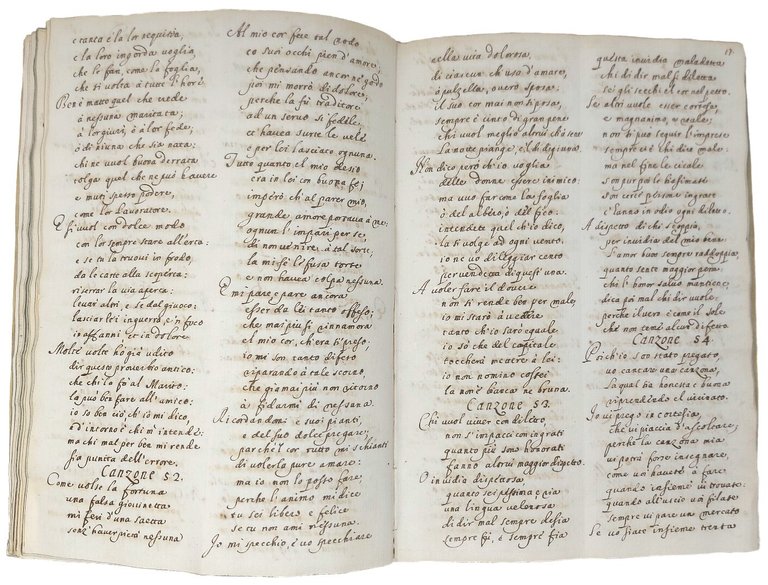 e tanta è la lor nequitia,
e la loro ingorda voglia,
che lo fan, come la foglia,
che si volta à tutte l'hore.
Ben è matto quel che crede
à nessuna maritata;
à lor giuri, ò à lor fede,
ò di niuna che sia nata:
chi ne vuol buona derrata
tolga quel che ne può havere
e muti spesso podere,
come lor lavoratore.
E si vuol con dolce modo
con lor sempre stare all'erta:
e se tu la truovi in frodo,
da le carte alla scoperta:
riserrar la via aperta:
levar altri, e se dal giuoco:
lasciar lei in guerra, e 'n fuoco
in affanni et in dolore.
Molte volte ho già udito
dir questo proverbio antico:
che chi lo fà al Marito:
la può ben fare all'amico:
io so ben ciò ch'io mi dico,
ed intorno è chi m'intende:
ma chi mal per ben mi rende
fia punita dell'errore.
Canzone 52.
Come volse la fortuna
una falsa giovinetta
mi ferì d'una saetta
senz'haver pietà nessuna
Al mio cor fece tal nodo
co suoi occhi pien d'amore;
che pensando ancor ne godo
poi mi morrò di dolore,
perche la fù traditore
ad un servo sì fedele
ch'havea surte le vele
e per lei lasciato ognuna.
Tutto quanto el mio desio
era in lei con buona fe;
imperò ch'al parer mio,
grande amore portava à me:
ognun l'impari per se,
di non venire à tal sorte,
la mi fè le fusa torte
e non havea colpa nessuna.
E mi pare pare ancora
esser da lei tanto offeso;
che mai più s'innamora
el mio cor, ch'era sì preso,
io mi son tanto difeso
riparando à tale scorno,
che giamai più non ritorno
à fidarmi di nessuna.
Ricordandomi e suoi pianti,
e del suo dolce pregare;
parche'l cor tutto mi schianti
di volerla pure amare:
ma io non lo posso fare,
perche l'animo mi dice
tu sei libero e felice
se tu non ami nessuna.
Io mi specchio, e vo specchiare
17.
nella vita dolorosa,
di ciascun ch'usa d'amare,
ò pulzella, overo sposa.
il suo cor mai non si posa,
sempre è cinto di gran pene
chi vuol meglio altrui ch'à sene
la notte piange, e'l dì digiuna.
Non dico però ch'io voglia
delle donne essere inimico:
ma vuo' far come la foglia
ò del albero, ò del fico:
intendete quel ch'io dico,
la si volge ad ogni vento.
io ne vo di leggiar cento
per vendetta di quest'una.
A voler fare il dovere
non si rende ben per male;
io mi starò à vedere
tanto ch'io sarò eguale
io so che del capitale
toccherà mettere à lei:
io non nomino costei
la non è bianca ne bruna.
Canzone 53.
Chi vuol viver con diletto,
non s'impacci con ingrati
quanto più sono honorati
fanno altrui maggior dispetto.
O invidia dispettosa,
quanto sei pessima e ria
una lingua velenosa
di dir mal sempre desia
sempre fù, e sempre fia
questa invidia maladetta
chi di dir mal si diletta
sei gli secchi el cor nel petto.
Se altri vuole esser cortese,
e magnanimo, e reale;
non ti può seguir l'imprese
sempre v'è chi dice male.
ma nel fine le cicale
son pur poi le biasimate
son certe persone ingrate
c'hanno in odio ogni diletto.
A dispetto di chi scoppia,
per invidia del mio bene
l'amor buon sempre raddoppia,
quanto sente maggior pena
chi l'honor salvo mantiene
dica poi mal chi dir vuole,
perche il vero è come il sole
che non teme alcun difetto
Canzone 54.
Poich'io son stato pregato,
vo cantare una canzona,
la qual sia honesta e buona
riprendendo el vicinato.
Io vi prego in cortesia,
che vi piaccia d'ascoltare;
perche la canzona mia
vi potrà forse insegnare,
come voi havete à fare
quando insieme vi trovate:
quando all'uscio voi filate
sempre vi pare un mercato
Se vo siate insieme trenta